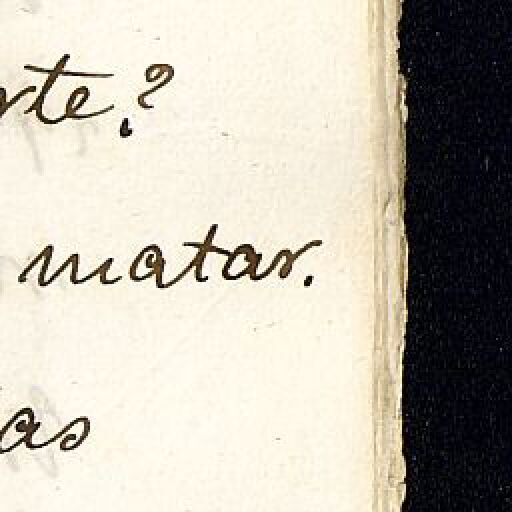 rte?
matar.
as